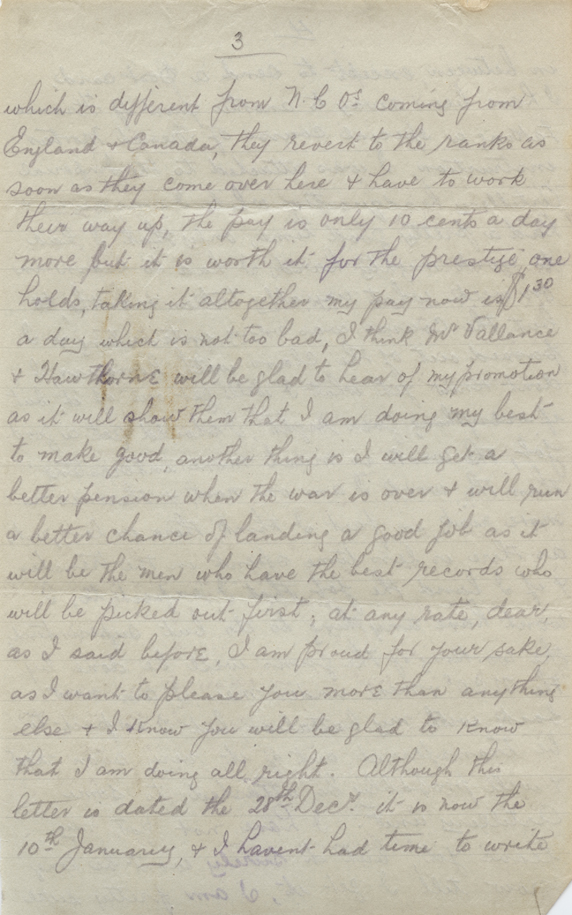 3
which is different from N.C.Os. coming from
England & Canada, they revert to the ranks as
soon as they come over here & have to work
their way up, the pay is only 10 cents a day
more but it is worth it for the prestige one
holds, taking it altogether my pay now is $1.30
a day which is not too bad, I think Mr Vallance
& Hawthorne will be glad to hear of my promotion
as it will show them that I am doing my best
to make good, another thing is I will get a
better pension when the war is over & will run
a better chance of landing a good job as it
will be the men who have the best records who
will be picked out first, at any rate, dear,
as I said before, I am proud for your sake,
as I want to please you more than anything
else & I know you will be glad to know
that I am doing all right. Although this
letter is dated the 28th Decr. it is now the
10th Januarary, & I havent had time to write